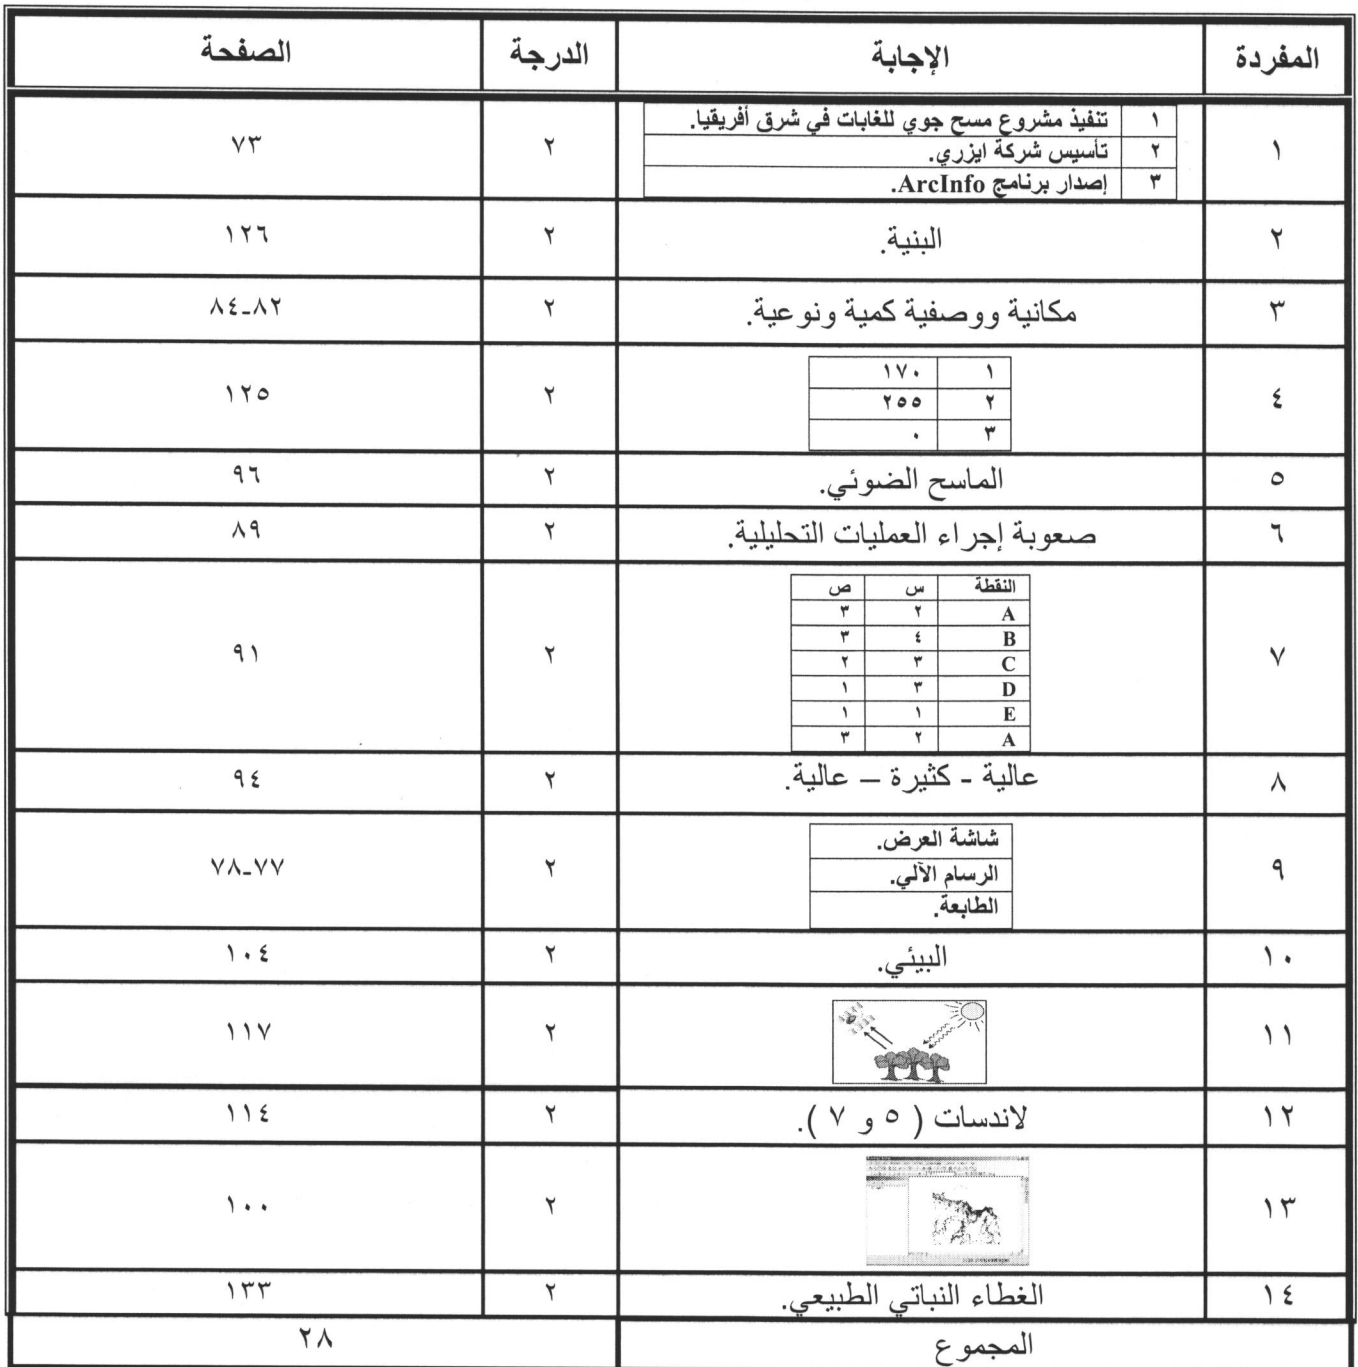 المفردة الإجابة الدرجة الصفحة
١ ١ تنفيذ مشروع مسح جوي للغابات في شرق أفريقيا. ٢ ٧٣
٢ تأسيس شركة ايزري.
٣ إصدار برنامج ArcInfo.
٢ البنية. ٢ ١٢٦
٣ مكانية ووصفية كمية ونوعية. ٢ ٨٢-٨٤
٤ ١ ١٧٠ ٢ ١٢٥
٢ ٢٥٥
٣ ٠
٥ الماسح الضوئي. ٢ ٩٦
٦ صعوبة إجراء العمليات التحليلية. ٢ ٨٩
٧ النقطة س ص ٢ ٩١
A ٢ ٣
B ٤ ٣
C ٣ ٢
D ٣ ١
E ١ ١
A ٢ ٣
٨ عالية - كثيرة – عالية. ٢ ٩٤
٩ شاشة العرض. ٢ ٧٧-٧٨
الرسام الآلي.
الطابعة.
١٠ البيئي. ٢ ١٠٤
١١ ٢ ١١٧
١٢ لاندسات ( ٥ و ٧ ). ٢ ١١٤
١٣ ٢ ١٠٠
١٤ الغطاء النباتي الطبيعي. ٢ ١٣٣
المجموع ٢٨